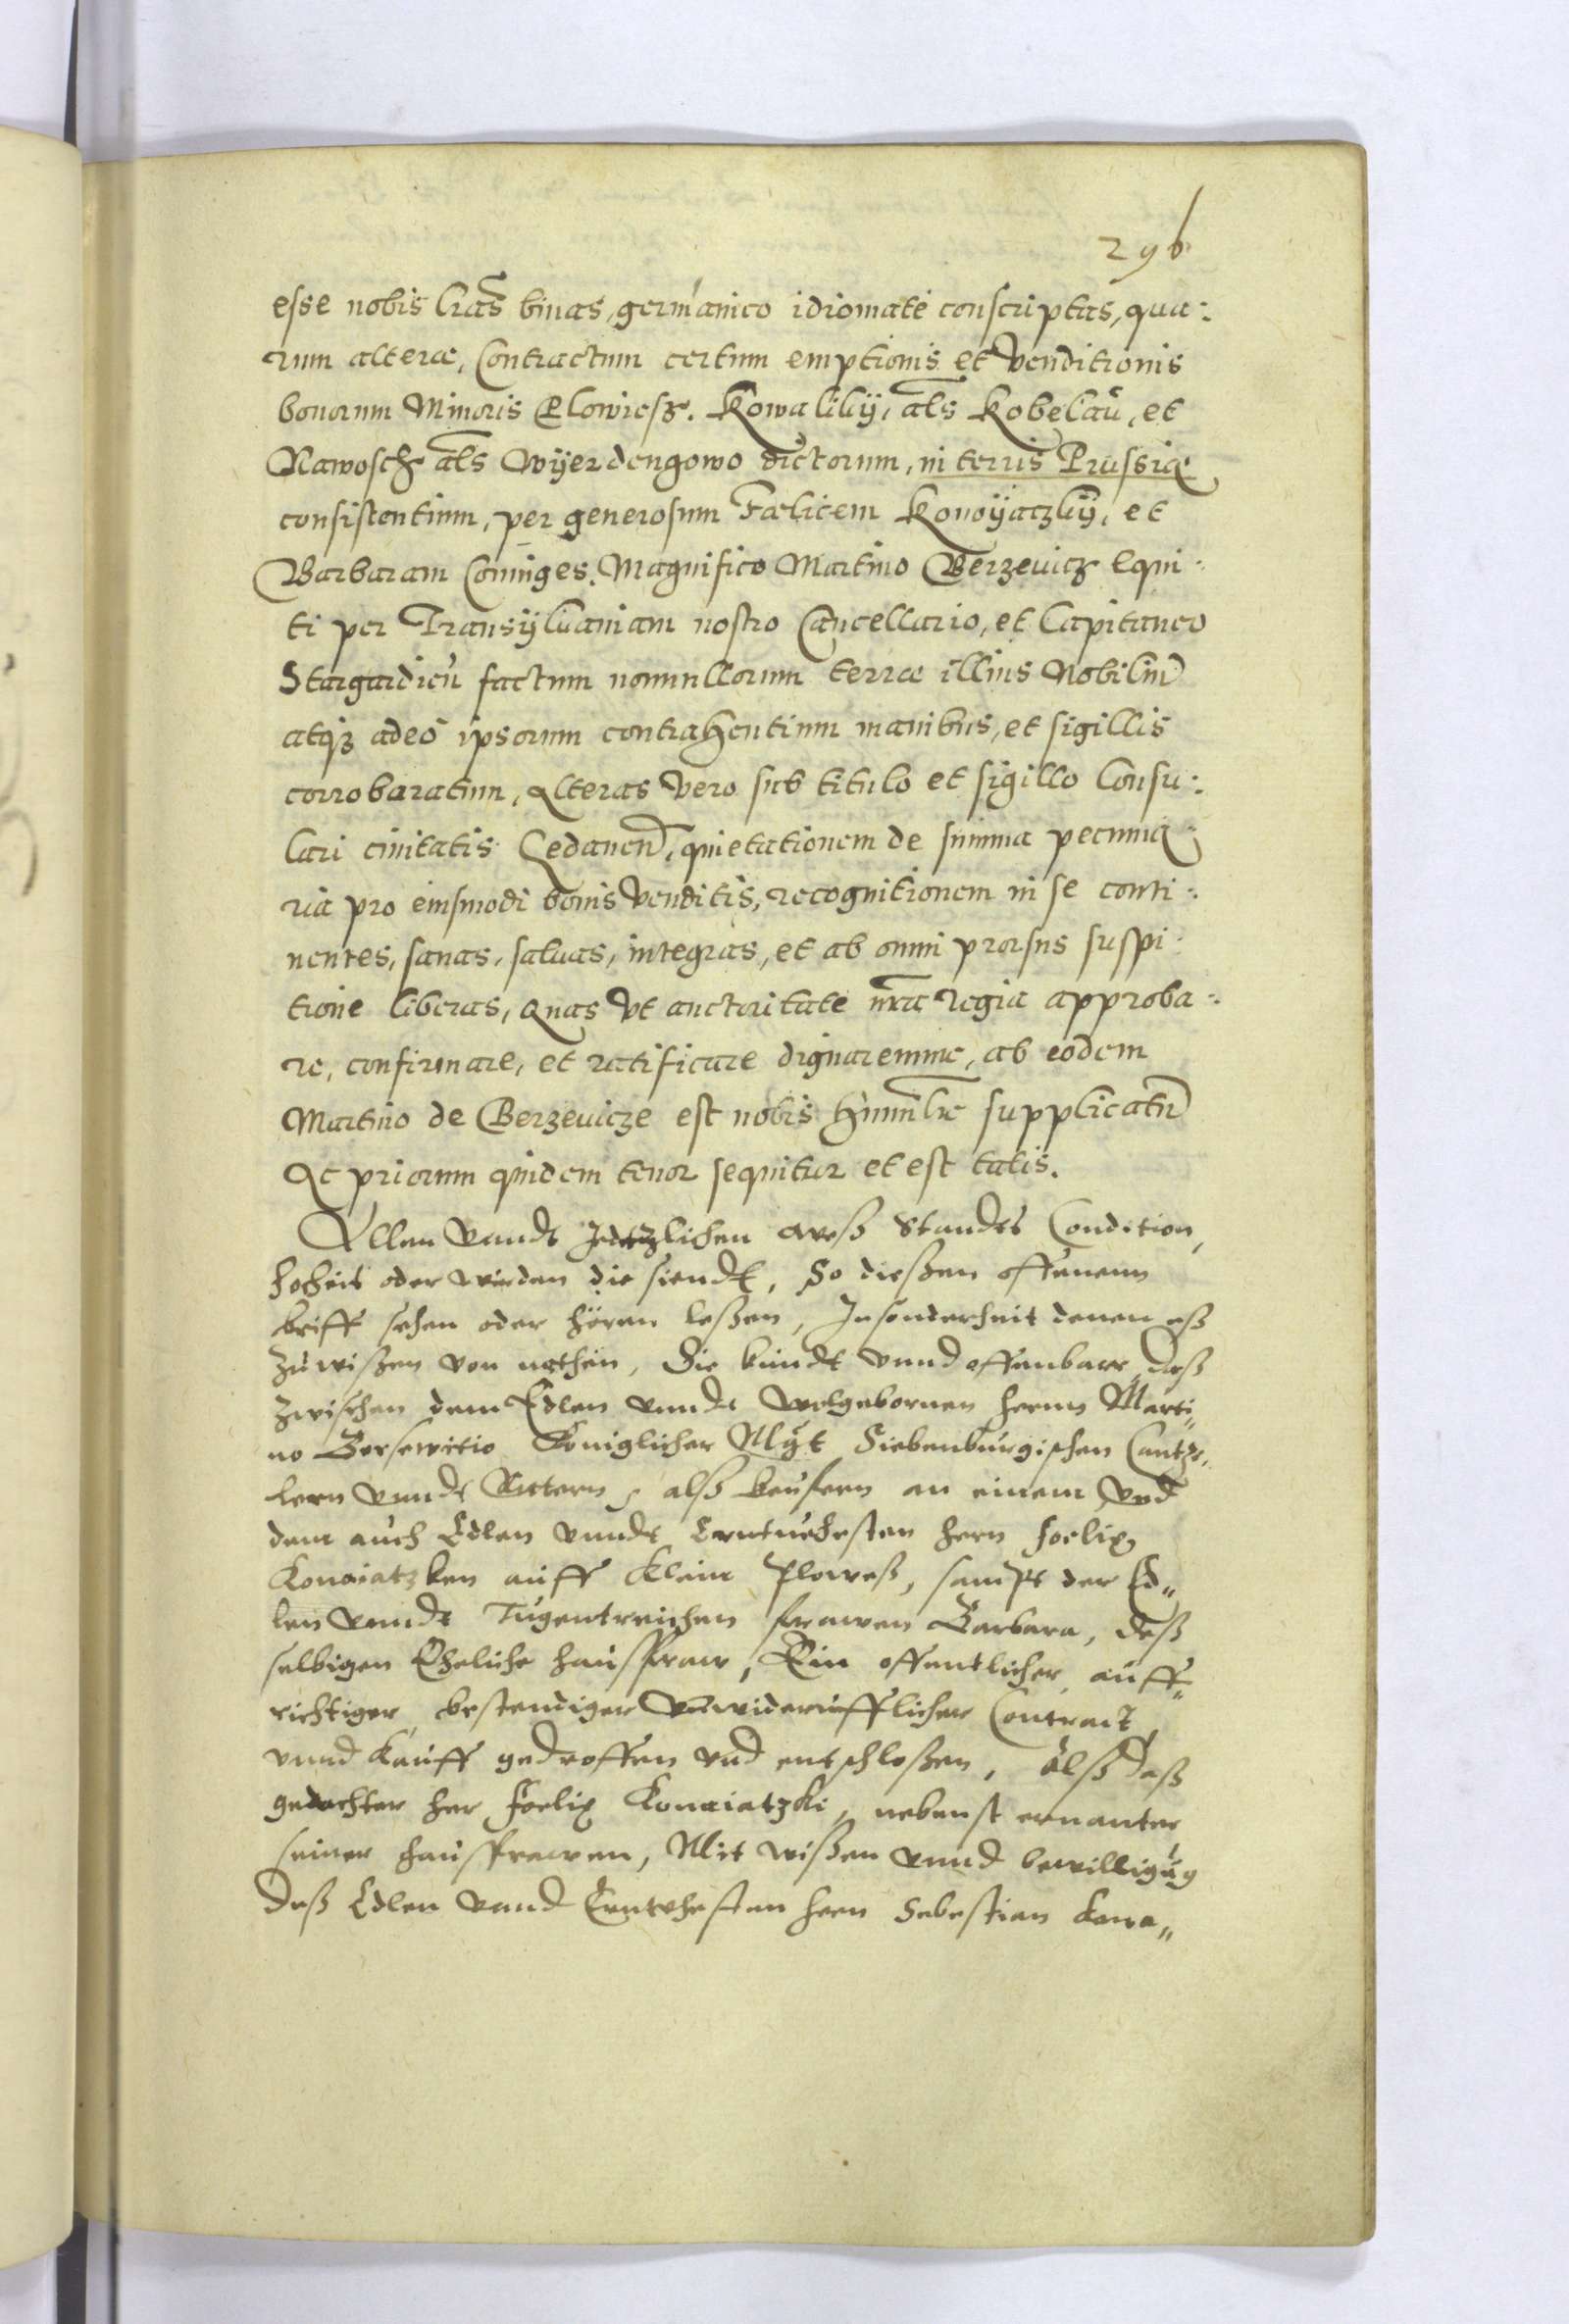 296
esse nobis l̃ras binas, germanico idiomate conscriptas, qua:
rum alterae, Contractum certum emptionis et Venditionis
bonorum Minoris Plowiesz. Kowalikÿ, al̃s Kobelaŭ, et
Nawosch al̃s Wÿerdengowo dictorum, in terris Prussiae
consistentium, per generosum Faelicem Konoÿaczkÿ, et
Barbaram Coniuges. Magnifico Martino Berzeuicz Equi:
ti per Transÿluaniam nostro Cancellario, et Capitaneo
Stargardień factum nonnullorum terrae illius Nobiliũ
atqz adeo ipsorum contrahentium manibus, et sigillis
corrobaratum, Alteras Vero sub titulo et sigillo Consu:
lari ciuitatis Gedaneñ, quietationem de summa pecunia:
ria pro eiusmodi bonis Venditis, recognitionem in se conti:
nentes, sanas, saluas, integras, et ab omni prorsus suspi:
tione liberas, Quas Vt auctoritate nr̃a Regia approba:
re, confirmare, et ratificare dignaremur, ab eodem
Martino de Berzeuicze est nobis humil̃r supplicatũ
Ac priorum quidem tenor sequitur et est talis.
Allen vnndt Jedtzlichen weß Standts Condition,
hoheit oder wirden die siendt, So dießen offenenn
brieff sehen oder hören leßen, Jnsonderheit denen eß
zu wißen von nöthen, Sie kundt vnnd offenbarr, daß
zwischen dem Edlen vnndt wolgebornen herrn Marti„
no Bersewitio Königlicher Maÿt Siebenbürgischen Cantze„
lern vnndt Rittern, alß keufern an einem vnd
dem auch Edlen vnndt Erntuehesten hern Foelix
Konoiatzken auff Klein Plowesß, sampt der Ed„
len vnndt Tugentreichen frawen Barbara, deß
selbigen Eheliche haußfraw, Ein offentlicher, auff„
richtiger, bestendiger Vnwiderrufflicher Contract,
vnnd Kauff gedroffen vnd entschloßen, Alß daß
gedachter her Foelix Konoiatzki, nebenst ernanter
seiner haußfrawen, Mit wißen vnnd bewilligŭg
Deß Edlen vnnd Erntvhesten hern Sebestian Kono„